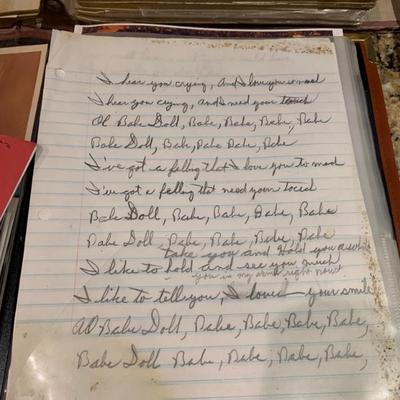 I hear you crying, And I love you so mad
I hear you crying, and I need your touch
Ol Babe Doll, Babe, Babe, Babe, Babe
Babe Doll, Bab, Babe Babe, Babe
I've got a felling that I love you to mad
I've got a felling that need your toucd
Babe Doll, Babe, Babe, Babe, Babe
Babe Doll, Babe, Babe, Babe, Babe
take you and hold you awhile
I like to hold and see you much
you in my arms right now
I like to tell you, I loved your smile
Ol Babe Doll, Babe, Babe, Babe, Babe,
Babe Doll Babe, Babe, Babe, Babe,